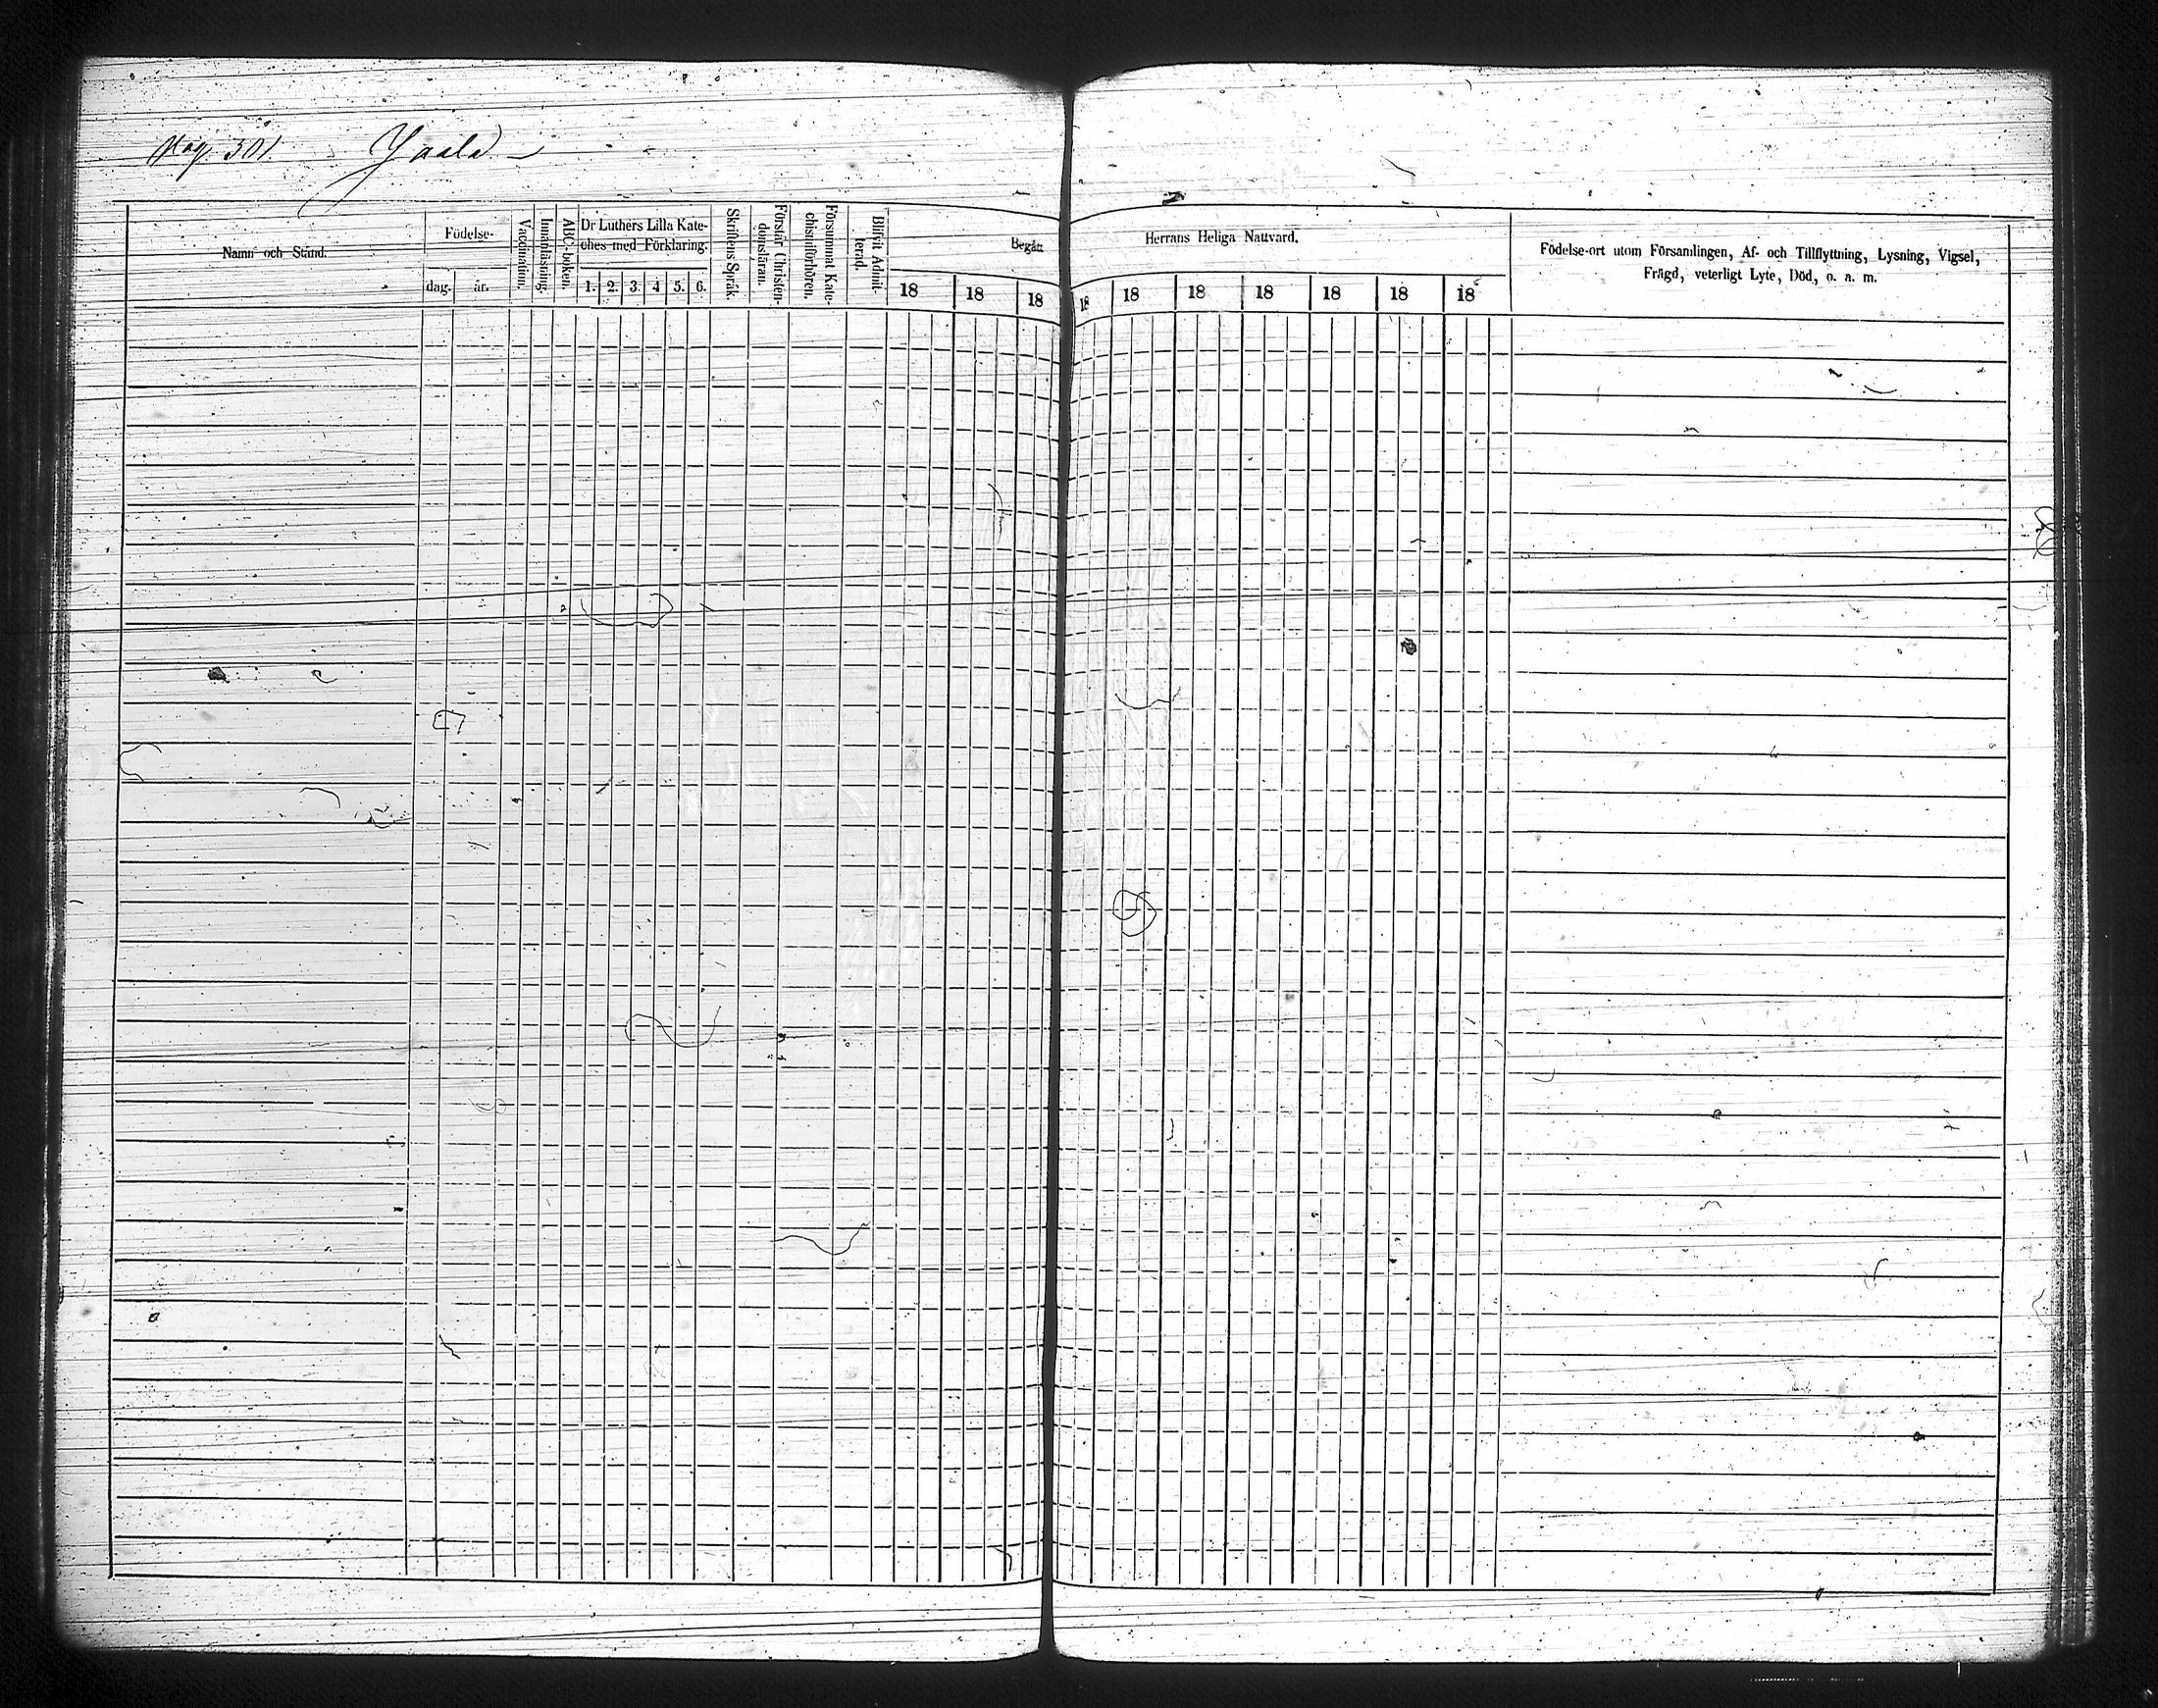 Pag. 301. Yaala
Namn och Stånd.
Födelse-
dag.
år.
Vaccination.
Innanläsning.
ABC-boken.
Dr Luthers Lilla Kate-
ches med Förklaring.
1. 2. 3. 4 5. 6.
Skriftens Språk.
Förstår Christen-
domsläran.
Försummat Kate-
chismiförhören.
Blifvit Admit-
terad.
Begått
18 18 18
Herrans Heliga Nattvard.
18 18 18 18 18 18 18
Födelse-ort utom Församlingen, Af- och Tillflyttning, Lysning, Vigsel,
Frägd, veterligt Lyte, Död, o. a. m.